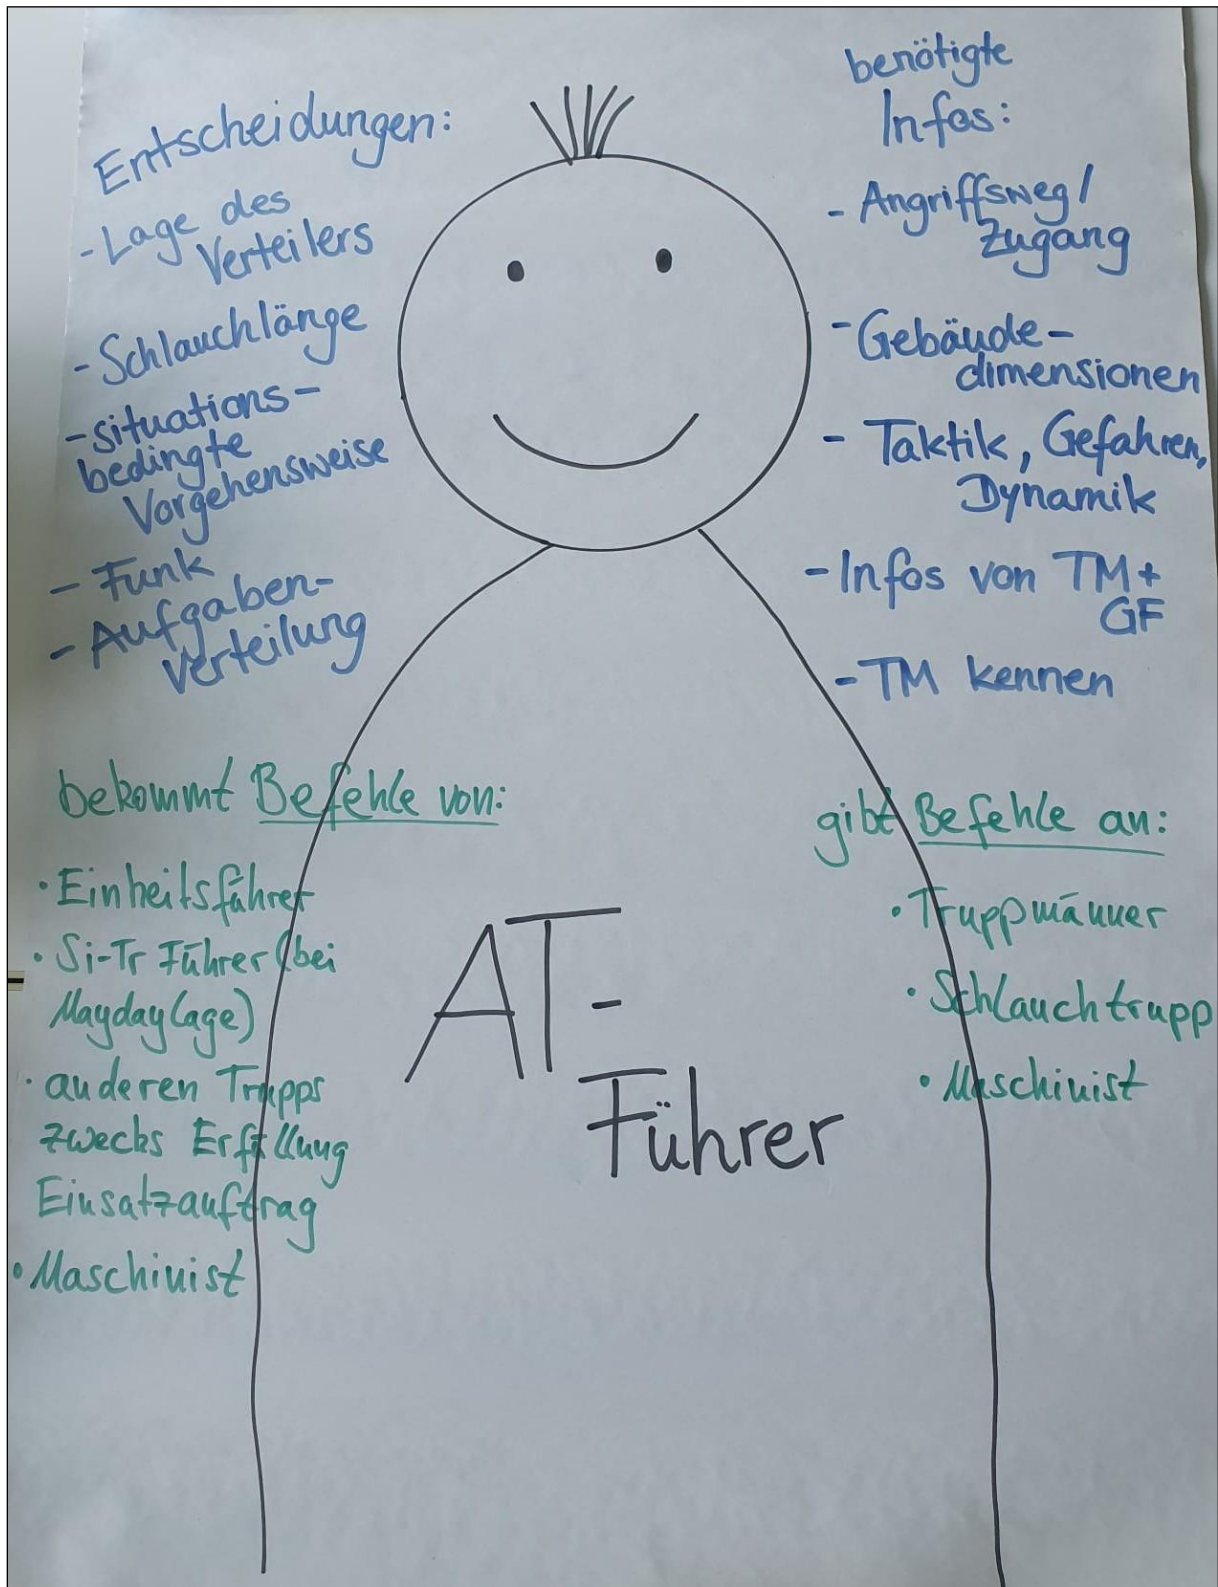 Entscheidungen:
- Lage des
Verteilers
- Schlauchlänge
- situations-
bedingte
Vorgehensweise
- Funk
- Aufgaben-
verteilung
benötigte
Infos:
- Angriffsweg/
Zugang
- Gebäude-
dimensionen
- Taktik, Gefahren,
Dynamik
- Infos von TM+
GF
- TM kennen
bekommt Befehle von:
• Einheitsführer
• Si-Tr Führer (bei
Maydaylage)
• anderen Trupps
zwecks Erfüllung
Einsatzauftrag
• Maschinist
gibt Befehle an:
• Truppmänner
• Schlauchtrupp
• Maschinist
AT-
Führer